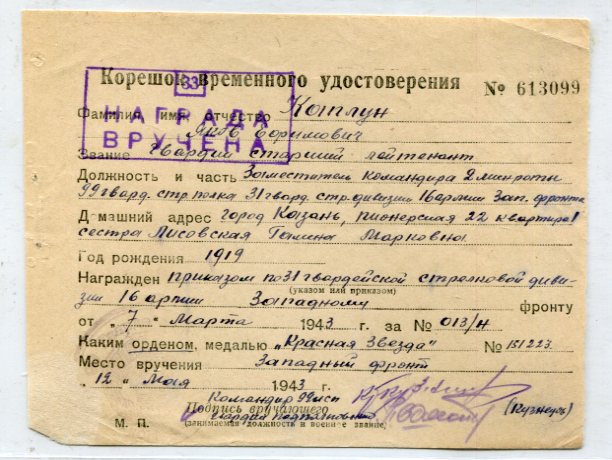 Корешок временного удостоверения № 613099
33
НАГРАДА
ВРУЧЕНА
Фамилия, имя, отчество Котлун
Яков Ефимович
Звание Гвардии старший лейтенант
Должность и часть Заместитель командира 2 мин роты
99 гвард. стр. полка 31 гвард. стр. дивизии 16 армии Зап. фронта
Домашний адрес город Казань, пионерская 22 квартира 1
сестра Лисовская Галина Марковна
Год рождения 1919
Награжден приказом по 31 гвардейской стрелковой диви-
(указом или приказом)
зии 16 армии Западному фронту
от „ 7 " Марта 1943 г. за № 013/н
Каким орденом, медалью „Красная Звезда" № 151223
Место вручения Западный фронт
„ 12 " Мая 1943 г.
Командир 99 гсп
Подпись вручающего
гвардии подполковник (Кузнецов)
М. П. (занимаемая должность и военное звание)